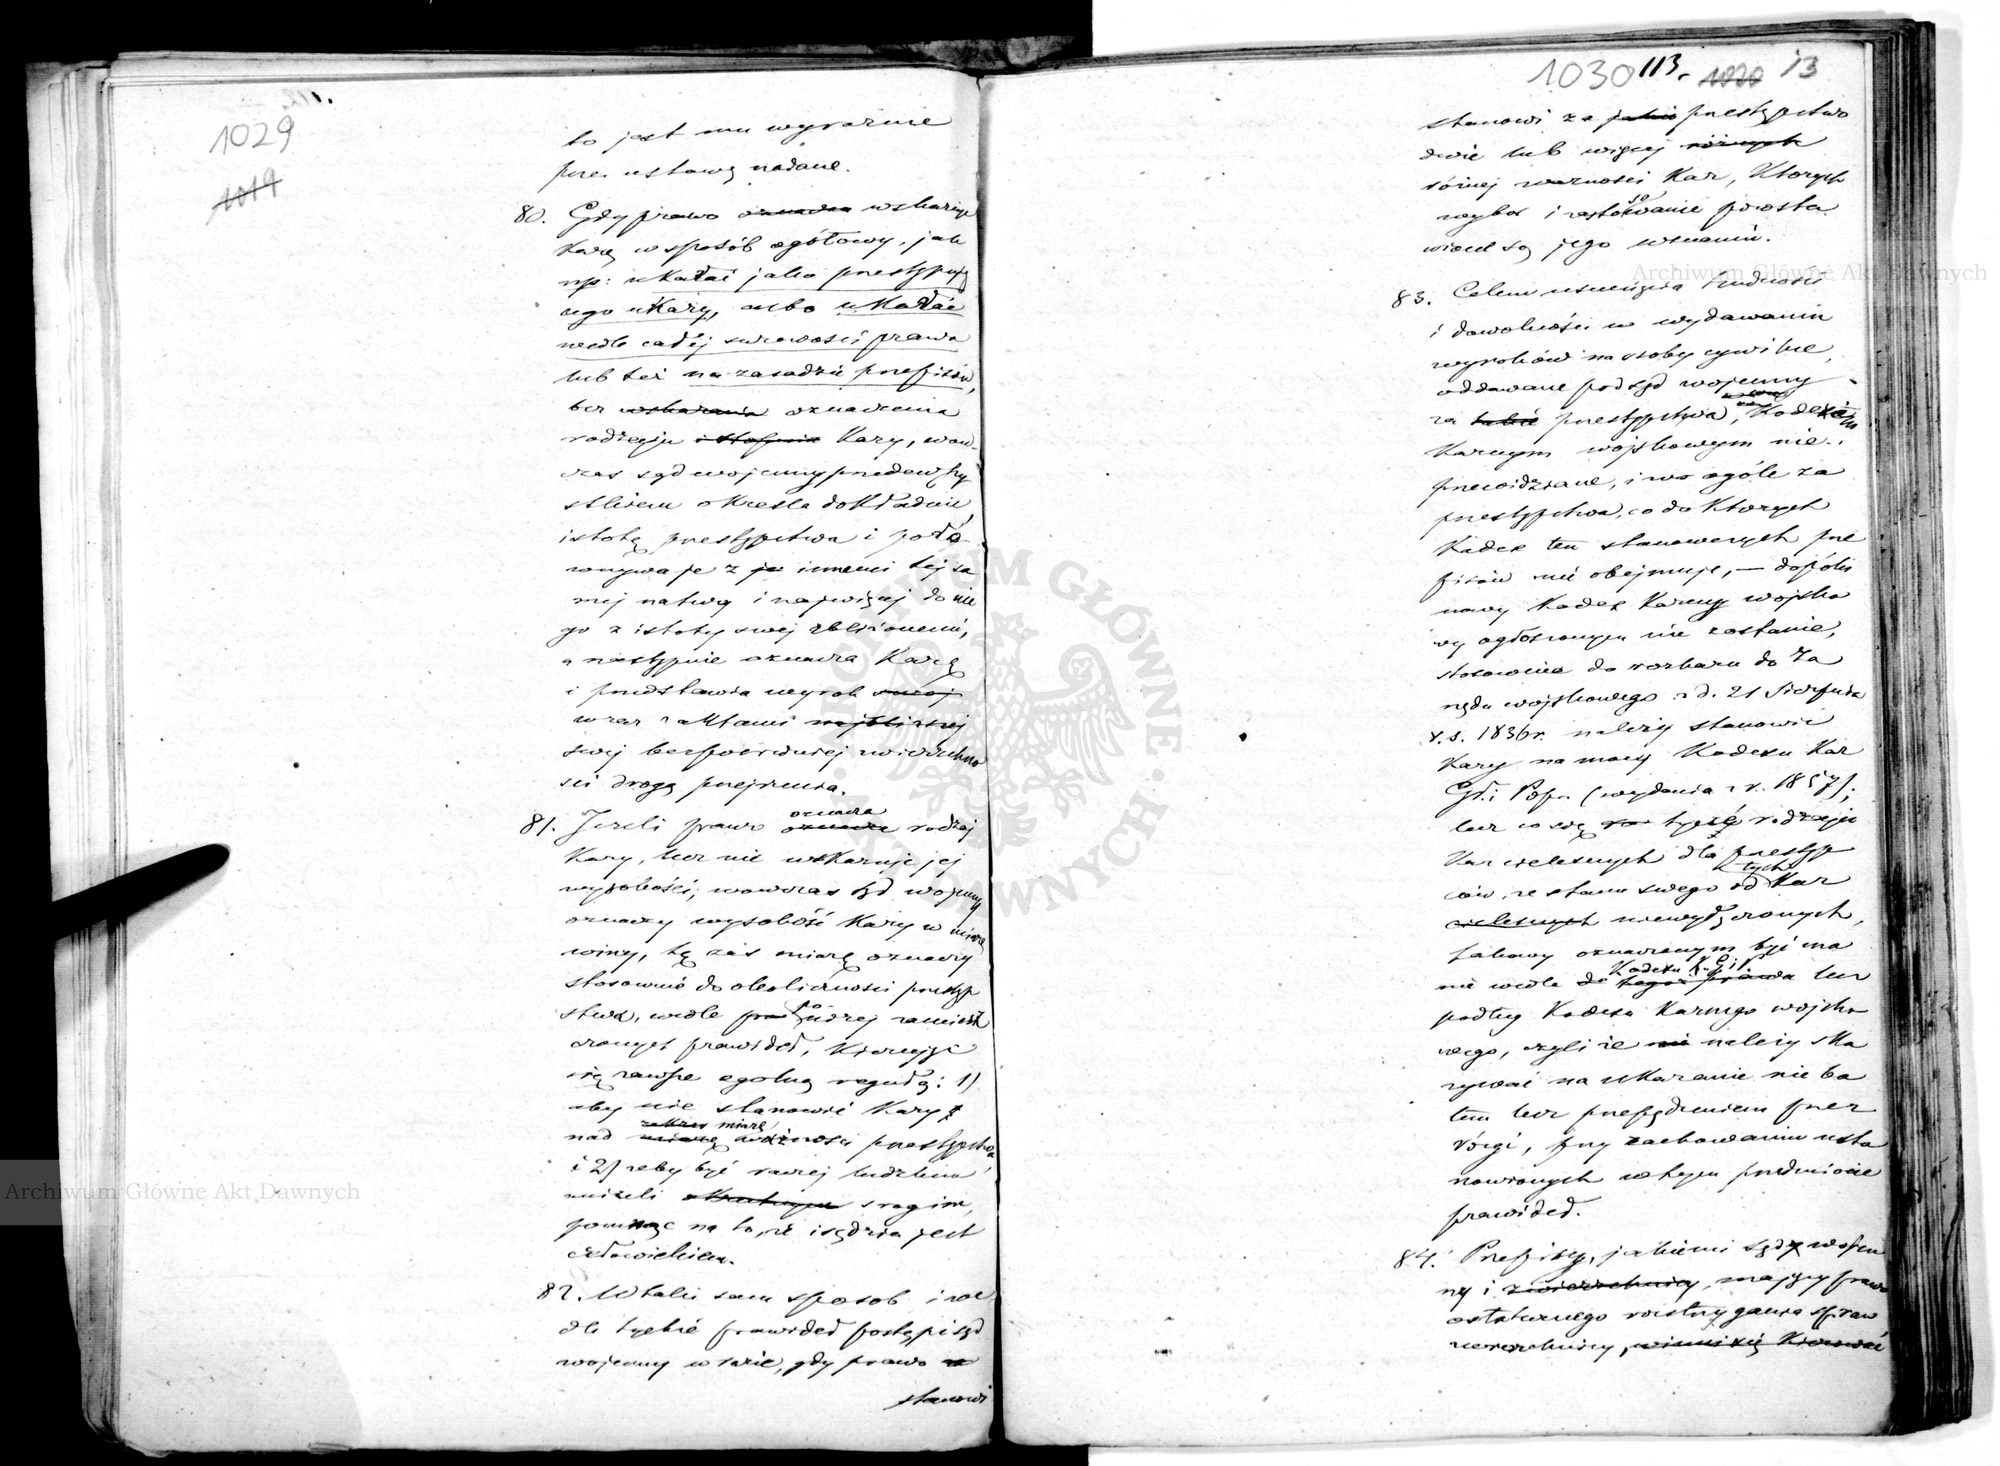 1029
1019
to jest mu wyraźnie
przez ustawę nadane.
80. Gdy prawo oznacza wskazuje
Karę w sposób ogółowy, jak
np: ukarać jako przestępują
cego ukarzy, albo ukarać
wedle całéj surowości prawa
lub też na zasadzie przepisów,
bez wskazania oznaczenia
rodzaju i stopnia Kary, wów-
czas sąd wojenny przedewszy
stkiem określa dokładnie
istotę przestępstwa i poró
wnywa je z je innemi tej sa
mej natury i najwięcej do nie
go z istoty swej zbliżonemi,
a następnie oznacza Karę
i przedstawia wyrok swoj
wraz z aktami najbliższej
swej bezpośredniej zwierzchno
ści drogą przejrzenia.
oznacza
81. Jeżeli prawo oznacza rodzaj
Kary, lecz nie wskazuje jej
wysokości, wówczas sąd wojenny
oznaczy wysokość Kary w miarę
winy, tę zaś miarę oznaczy
stosownie do okoliczności przestęp
stwa, wedle poniżej zamieszc
czonych prawideł, Kierując
się zawsze ogolną regułą: 1)
aby nie stanowić Kary
zakres miarę
nad miarę ważności przestępstwa,
i 2) żeby być raczej ludzkim
aniżeli okrutnym srogim,
pomnąc na to, że i sędzia jest
człowiekiem.
82. W taki sam sposob i we
dle tychże prawideł postąpi sąd
wojenny w razie, gdy prawo
stanowi
1030 113. 1020 13
stanowi za jakie przestępstwo
dwie lub więcej różnych
różnej ważności Kar, Których
wybor i zastosowanie pozosta
wione są jego uznaniu.
83. Celem usunięcia trudności
i dowolności w wydawaniu
wyroków na osoby cywilne,
oddawane pod sąd wojenny
za takie przestępstwa, Kodexem
Karnym wojskowym nie
przewidziane, i w ogóle za
przestępstwa, co do Ktorych
Kodex ten stanowczych prze
pisów nie obejmuje, — dopóki
nowy Kodex Karny wojsko
wy ogłoszonym nie zostanie,
stosownie do rozkazu do Za
rządu wojskowego z d. 21 Sierpnia
v. s. 1836 r. należy stanowić
Kary na mocy Kodexu Kar
Gł. i Popr. (wydania z r. 1857);
lecz co się tyczę rodzaju
Kar cielesnych dla przestęp
tych
ców, ze stanu swego od Kar
cielesnych niewyłączonych,
takowy oznaczonym być ma
Kodexu K. G. i P.
nie wedle do tegoż prawa lecz
podług Kodexu Karnego wojsko
wego, czyli że nie należy ska
zywać na ukaranie nie ba
tem lecz przepędzeniem przez
rózgi, przy zachowaniu usta
nowionych w tym przedmiocie
prawideł.
84. Przepisy, jakiemi sąd wojen
ny i zwierzchnicy, mający prawo
ostatecznego rozstrzygania spraw
zwierzchnicy, winni się Kierować